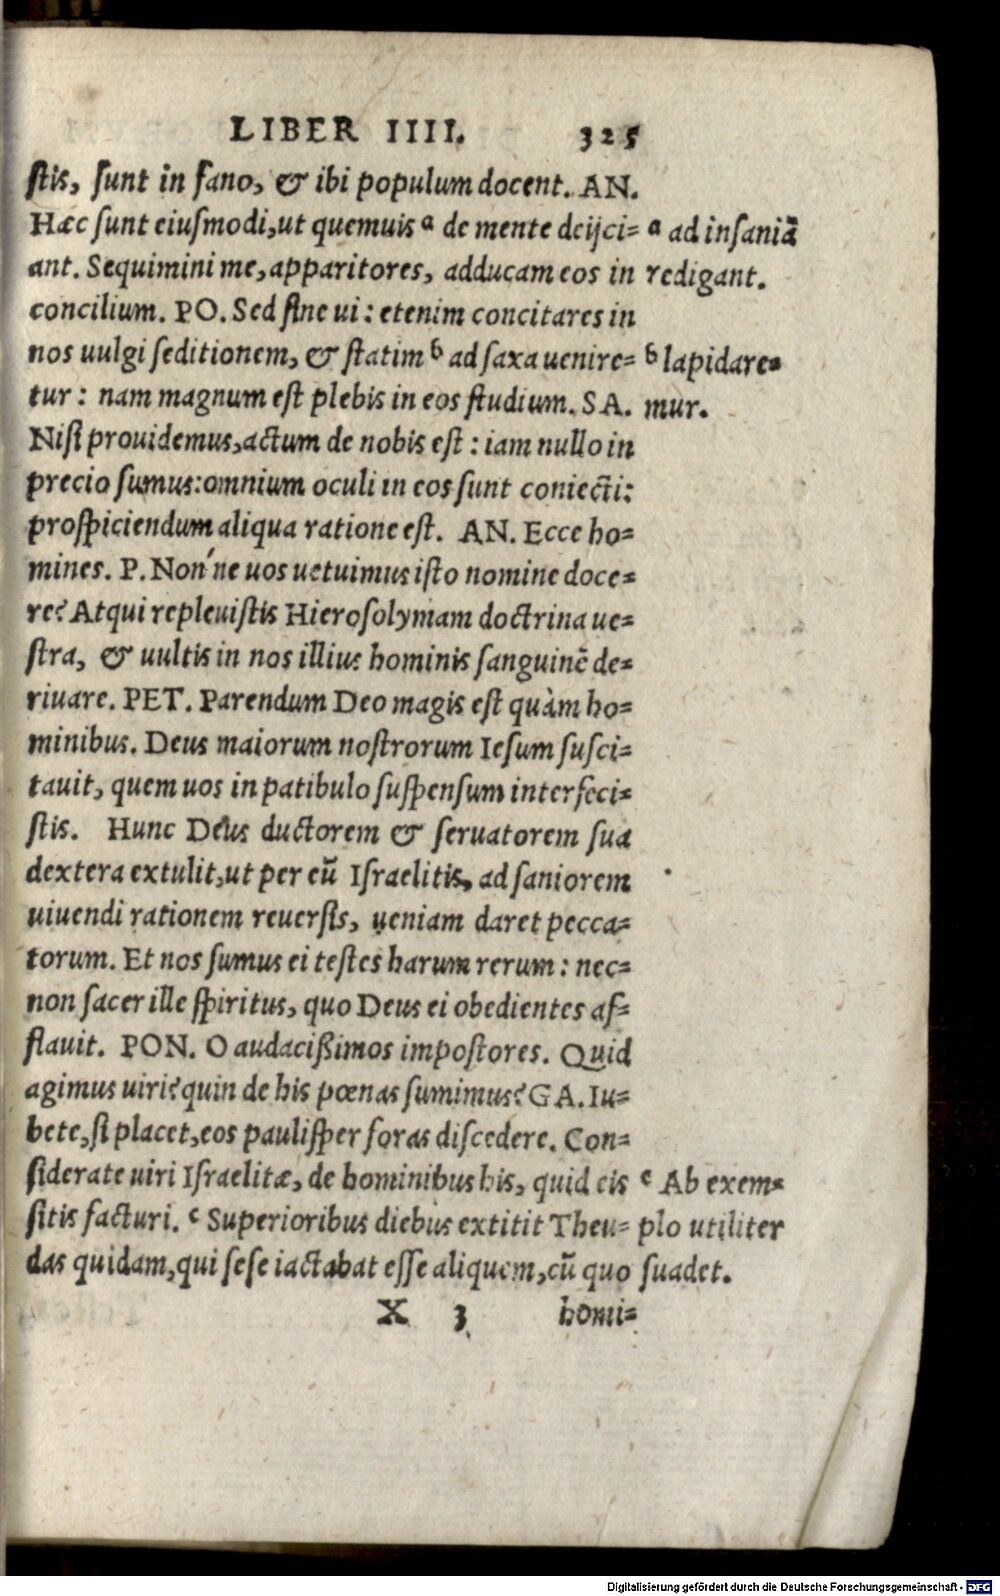 LIBER IIII. 325
stis, sunt in fano, & ibi populum docent. AN.
Hæc sunt eiusmodi, ut quemuis ᵃ de mente deijci= ᵃ ad insaniā
ant. Sequimini me, apparitores, adducam eos in redigant.
concilium. PO. Sed sine ui: etenim concitares in
nos uulgi seditionem, & statim ᵇ ad saxa uenire= ᵇ lapidare=
tur: nam magnum est plebis in eos studium. SA. mur.
Nisi prouidemus, actum de nobis est: iam nullo in
precio sumus: omnium oculi in eos sunt coniecti:
prospiciendum aliqua ratione est. AN. Ecce ho=
mines. P. Non'ne uos uetuimus isto nomine doce=
re? Atqui repleuistis Hierosolymam doctrina ue=
stra, & uultis in nos illius hominis sanguinē de=
riuare. PET. Parendum Deo magis est quàm ho=
minibus. Deus maiorum nostrorum Iesum susci=
tauit, quem uos in patibulo suspensum interfeci=
stis. Hunc Deus ductorem & seruatorem sua
dextera extulit, ut per eū Israelitis, ad saniorem
uiuendi rationem reuersis, ueniam daret pecca=
torum. Et nos sumus ei testes harum rerum: nec=
non sacer ille spiritus, quo Deus ei obedientes af=
flauit. PON. O audacißimos impostores. Quid
agimus uiri? quin de his pœnas sumimus? GA. Iu=
bete, si placet, eos paulisper foras discedere. Con=
siderate uiri Israelitæ, de hominibus his, quid eis ᶜ Ab exem=
sitis facturi. ᶜ Superioribus diebus extitit Theu= plo utiliter
das quidam, qui sese iactabat esse aliquem, cū quo suadet.
X 3 homi=
Digitalisierung gefördert durch die Deutsche Forschungsgemeinschaft - DFG